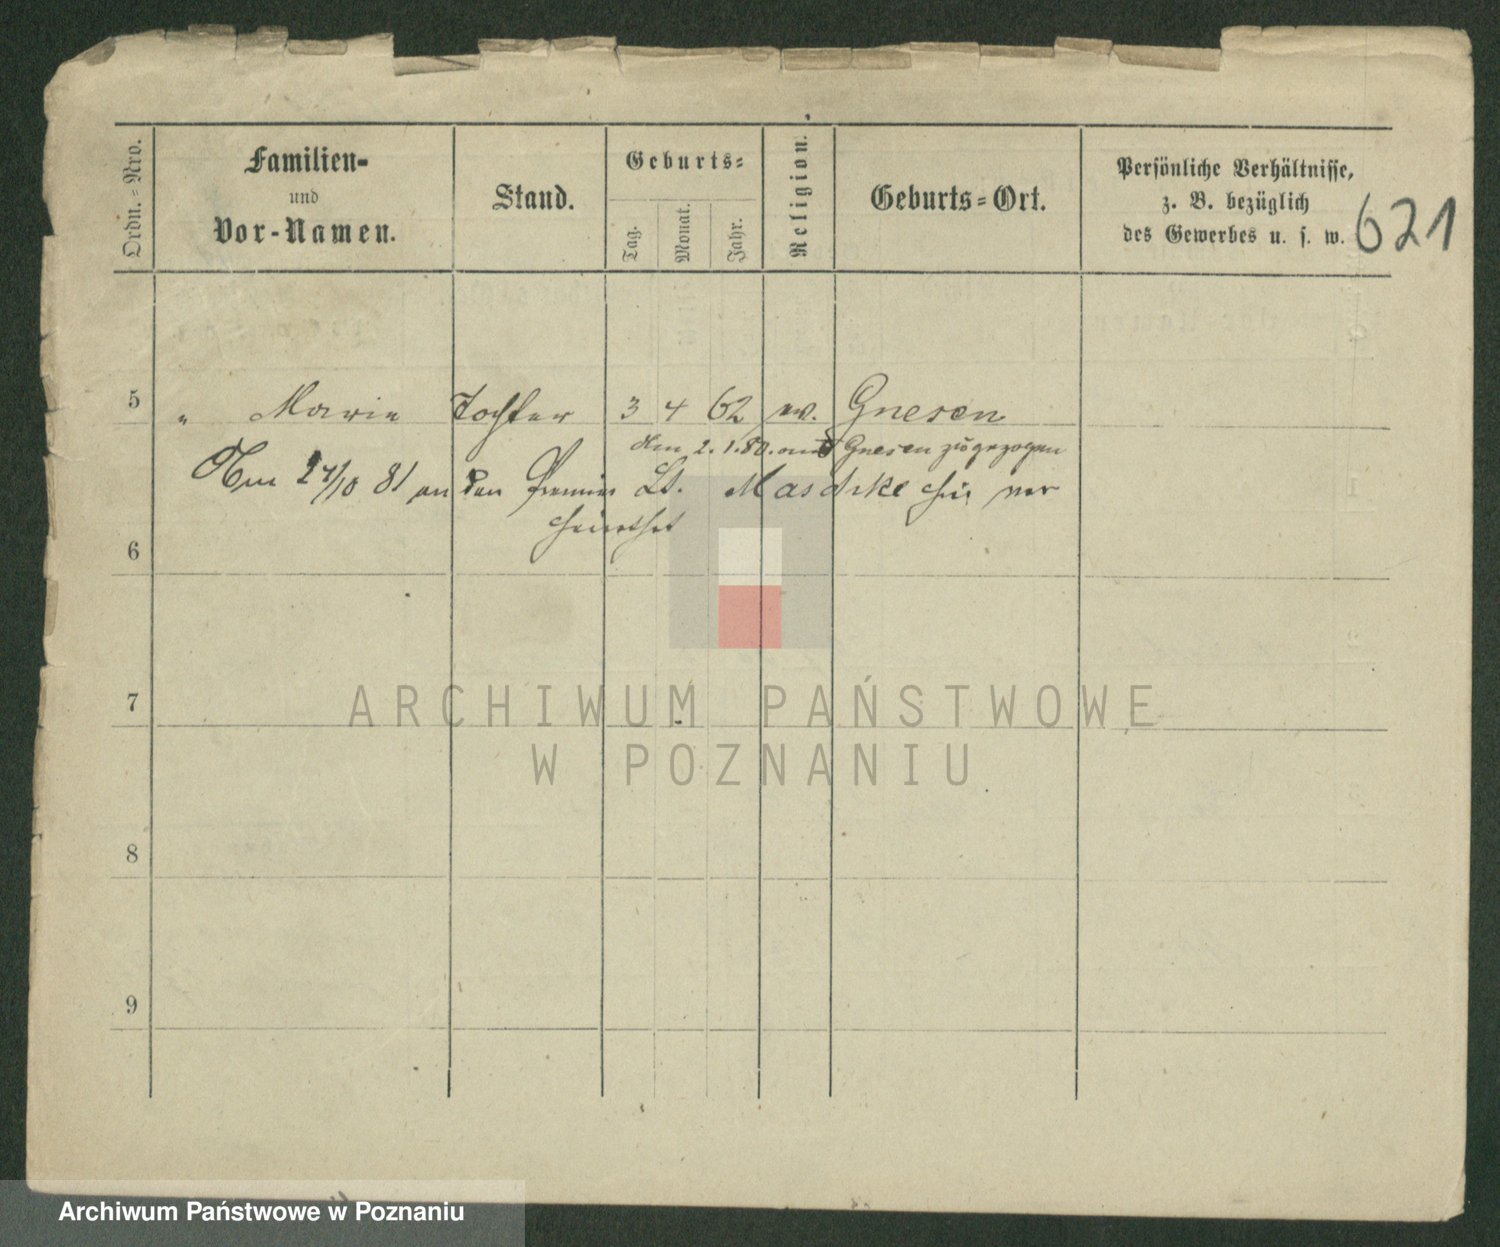 Ordn.=Nro.
Familien=
und
Vor-Namen.
Stand.
Geburts=
Tag.
Monat.
Jahr.
Religion.
Geburts=Ort.
Persönliche Verhältnisse,
z. B. bezüglich
des Gewerbes u. s. w.
621
5
" Marie Tochter 3 4 62 ev. Gnesen
Am 2.1.80. aus Gnesen zugezogen
Am 27/10 81 an den Premier Lt. Maschke hier ver
heirathet
6
7
8
9
ARCHIWUM PAŃSTWOWE
W POZNANIU
Archiwum Państwowe w Poznaniu